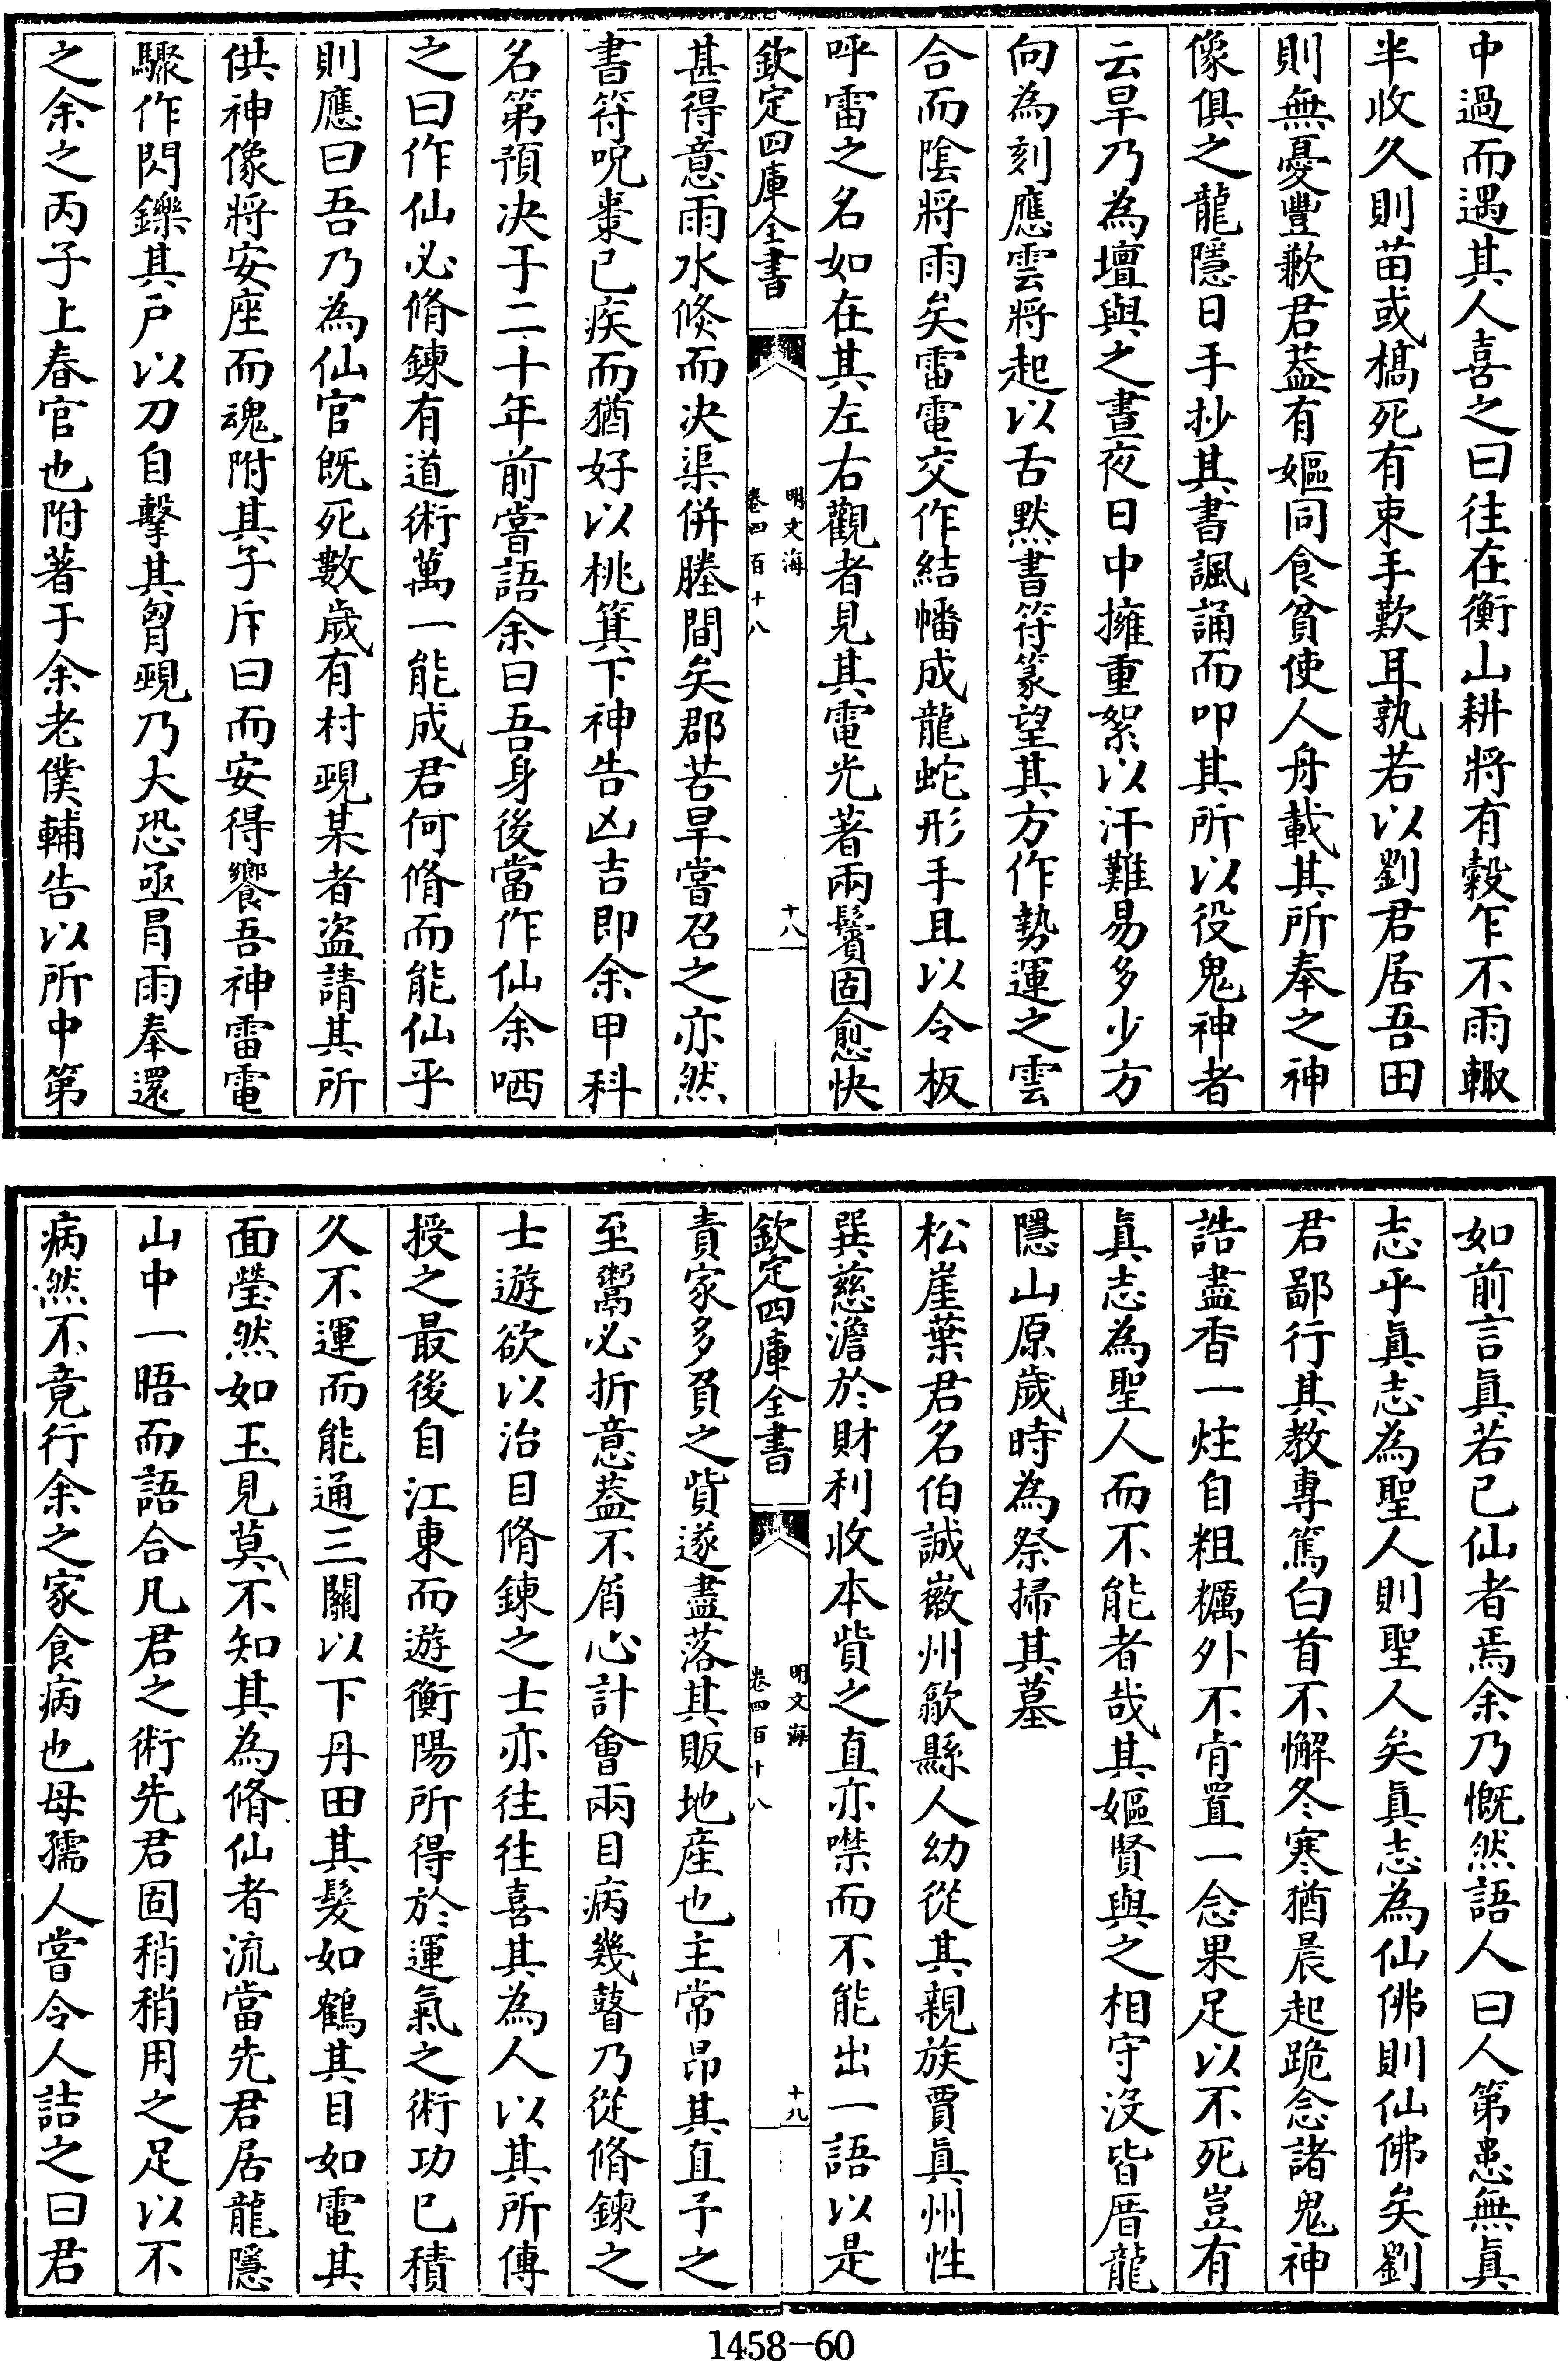 中過而遇其人喜之曰往在衡山耕將有穀乍不雨輒
半收久則苗或槁死有束手歎耳孰若以劉君居吾田
則無憂豐歉君葢有嫗同食貧使人舟載其所奉之神
像俱之龍隱日手抄其書諷誦而叩其所以役鬼神者
云旱乃為壇與之晝夜日中擁重絮以汗難易多少方
向為刻應雲將起以舌黙書符篆望其方作勢運之雲
合而隂將雨矣雷電交作結幡成龍蛇形手且以令板
呼雷之名如在其左右觀者見其電光著兩鬢固愈快
欽定四庫全書
明文海
卷四百十八
十八
甚得意雨水倐而决渠併塍間矣郡苦旱嘗召之亦然
書符呪棗已疾而猶好以桃箕下神告凶吉即余甲科
名第預决于二十年前嘗語余曰吾身後當作仙余哂
之曰作仙必脩鍊有道術萬一能成君何脩而能仙乎
則應曰吾乃為仙官既死數歲有村覡某者盗請其所
供神像將安座而魂附其子斥曰而安得饗吾神雷電
驟作閃鑠其戶以刀自擊其胷覡乃大恐亟冐雨奉還
之余之丙子上春官也附著于余老僕輔告以所中第
如前言眞若已仙者焉余乃慨然語人曰人第患無眞
志乎眞志為聖人則聖人矣眞志為仙佛則仙佛矣劉
君鄙行其教專篤白首不懈冬寒猶晨起跪念諸鬼神
誥盡香一炷自粗糲外不肯置一念果足以不死豈有
眞志為聖人而不能者哉其嫗賢與之相守沒皆厝龍
隱山原歲時為祭掃其墓
松崖葉君名伯誠徽州歙縣人幼從其親族賈眞州性
巽慈澹於財利收本貲之直亦噤而不能出一語以是
欽定四庫全書
明文海
卷四百十八
十九
責家多負之貲遂盡落其販地產也主常昂其直予之
至鬻必折意葢不屑心計會兩目病幾瞽乃從脩鍊之
士遊欲以治目脩鍊之士亦往往喜其為人以其所傳
授之最後自江東而遊衡陽所得於運氣之術功已積
久不運而能通三關以下丹田其髮如鶴其目如電其
面瑩然如玉見莫不知其為脩仙者流當先君居龍隱
山中一晤而語合凡君之術先君固稍稍用之足以不
病然不竟行余之家食病也母孺人嘗令人詰之曰君
1458-60